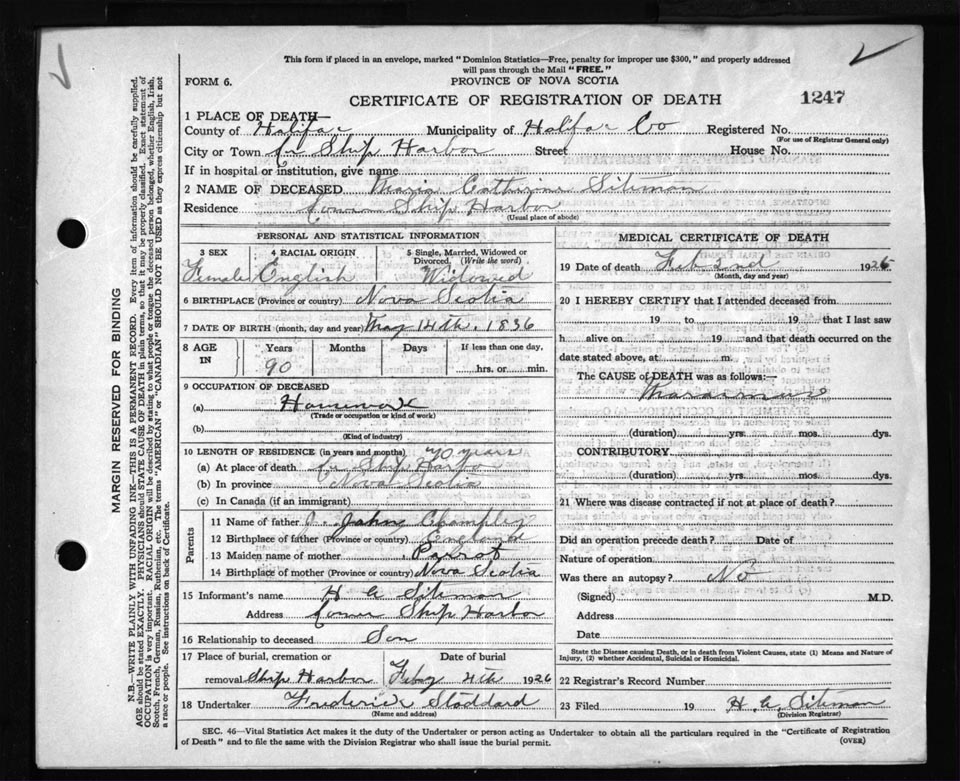 This form if placed in an envelope, marked "Dominion Statistics—Free, penalty for improper use $300," and properly addressed
will pass through the Mail "FREE."
FORM 6. PROVINCE OF NOVA SCOTIA
CERTIFICATE OF REGISTRATION OF DEATH 1247
1 PLACE OF DEATH—
County of Halifax Municipality of Halifax Co Registered No.
(For use of Registrar General only)
City or Town Lr Ship Harbor Street House No.
If in hospital or institution, give name
2 NAME OF DECEASED Maria Catherine Siteman
Residence Lower Ship Harbor
(Usual place of abode)
PERSONAL AND STATISTICAL INFORMATION
3 SEX 4 RACIAL ORIGIN 5 Single, Married, Widowed or Divorced. (Write the word)
Female English Widowed
6 BIRTHPLACE (Province or country) Nova Scotia
7 DATE OF BIRTH (month, day and year) May 14th, 1836
8 AGE IN Years Months Days If less than one day,
90 hrs. or min.
9 OCCUPATION OF DECEASED
(a) Housework
(Trade or occupation or kind of work)
(b)
(Kind of industry)
10 LENGTH OF RESIDENCE (in years and months) 70 years
(a) At place of death Lr Ship Harbor
(b) In province Nova Scotia
(c) In Canada (if an immigrant)
Parents
11 Name of father John
12 Birthplace of father (Province or country) England
13 Maiden name of mother
14 Birthplace of mother (Province or country) Nova Scotia
15 Informant's name H G Siteman
Address Lower Ship Harbor
16 Relationship to deceased Son
17 Place of burial, cremation or Date of burial
removal Ship Harbor Feby 4th 1926
18 Undertaker Frederick Stoddard
(Name and address)
MEDICAL CERTIFICATE OF DEATH
19 Date of death Feb 2nd 1926
(Month, day and year)
20 I HEREBY CERTIFY that I attended deceased from
19 , to 19 that I last saw
h alive on 19 and that death occurred on the
date stated above, at m.
The CAUSE of DEATH was as follows:—
Marasmus
(duration) yrs. mos. dys.
CONTRIBUTORY
(duration) yrs. mos. dys.
21 Where was disease contracted if not at place of death?
Did an operation precede death? Date of
Nature of operation
Was there an autopsy? No
(Signed) M.D.
Address
Date
State the Disease causing Death, or in death from Violent Causes, state (1) Means and Nature of
Injury, (2) whether Accidental, Suicidal or Homicidal.
22 Registrar's Record Number
23 Filed 19 H. G. Siteman
(Division Registrar)
SEC. 46—Vital Statistics Act makes it the duty of the Undertaker or person acting as Undertaker to obtain all the particulars required in the "Certificate of Registration
of Death" and to file the same with the Division Registrar who shall issue the burial permit. (OVER)
MARGIN RESERVED FOR BINDING
N.B.—WRITE PLAINLY WITH UNFADING INK—THIS IS A PERMANENT RECORD. Every item of information should be carefully supplied.
AGE should be stated EXACTLY. PHYSICIANS should STATE CAUSE OF DEATH in plain terms, so that it may be properly classified. Exact statement of
OCCUPATION is very important. RACIAL ORIGIN will be described by stating to what people or tongue the deceased person belonged, whether English, Irish,
Scotch, French, German, Russian, Ruthenian, etc. The terms "AMERICAN" or "CANADIAN" SHOULD NOT BE USED as they express citizenship but not
a race or people. See instructions on back of Certificate.